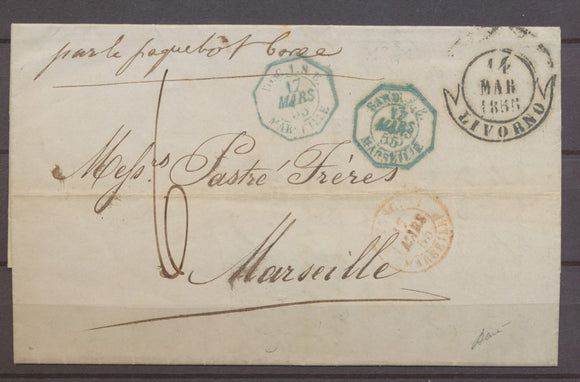 par le paquebot Corse
14
MAR
1855
LIVORNO
17
MARS
55
MARSEILLE
17
MARS
55
MARSEILLE
Mess.rs Pastré Frères
Marseille
17
MARS
55
MARSEILLE